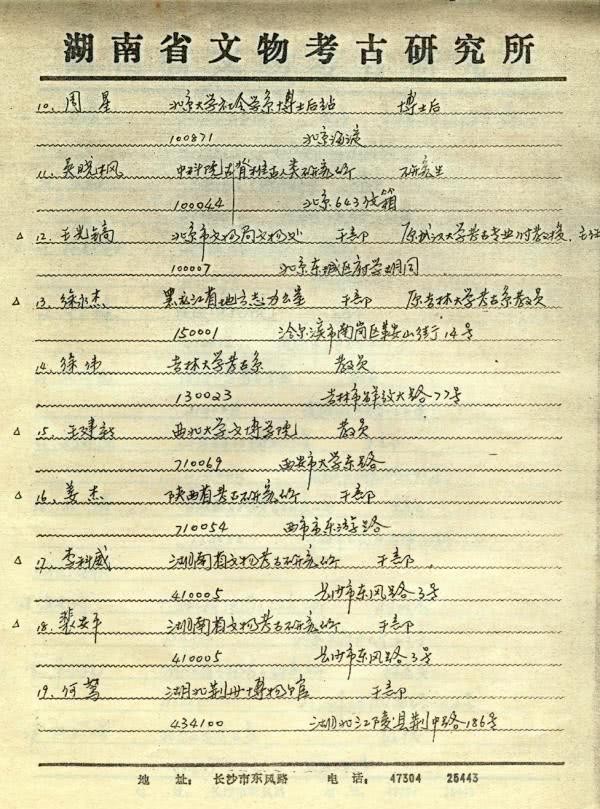 湖南省文物考古研究所
10. 周星 北京大学社会学系博士后站 博士后
100871 北京海淀
11. 吴晓枫 中科院古脊椎古人类研究所 研究生
100044 北京643信箱
△ 12. 王光镐 北京市文物局文物处 干部 原武汉大学考古专业付教授、主任
100007 北京东城区府学胡同
△ 13. 徐永杰 黑龙江省地方志办公室 干部 原吉林大学考古系教员
150001 哈尔滨市南岗区鞍山街14号
14. 徐伟 吉林大学考古系 教员
130023 吉林市解放大路77号
△ 15. 王建新 西北大学文博学院 教员
710069 西安市大学东路
△ 16. 姜杰 陕西省考古研究所 干部
710054 西市市乐游路
△ 17. 李科威 湖南省文物考古研究所 干部
410005 长沙市东风路3号
△ 18. 裴安平 湖南省文物考古研究所 干部
410005 长沙市东风路3号
19. 何驽 湖北荆州博物馆 干部
434100 湖北江陵县荆中路186号
地 址: 长沙市东风路 电 话: 47304 25443